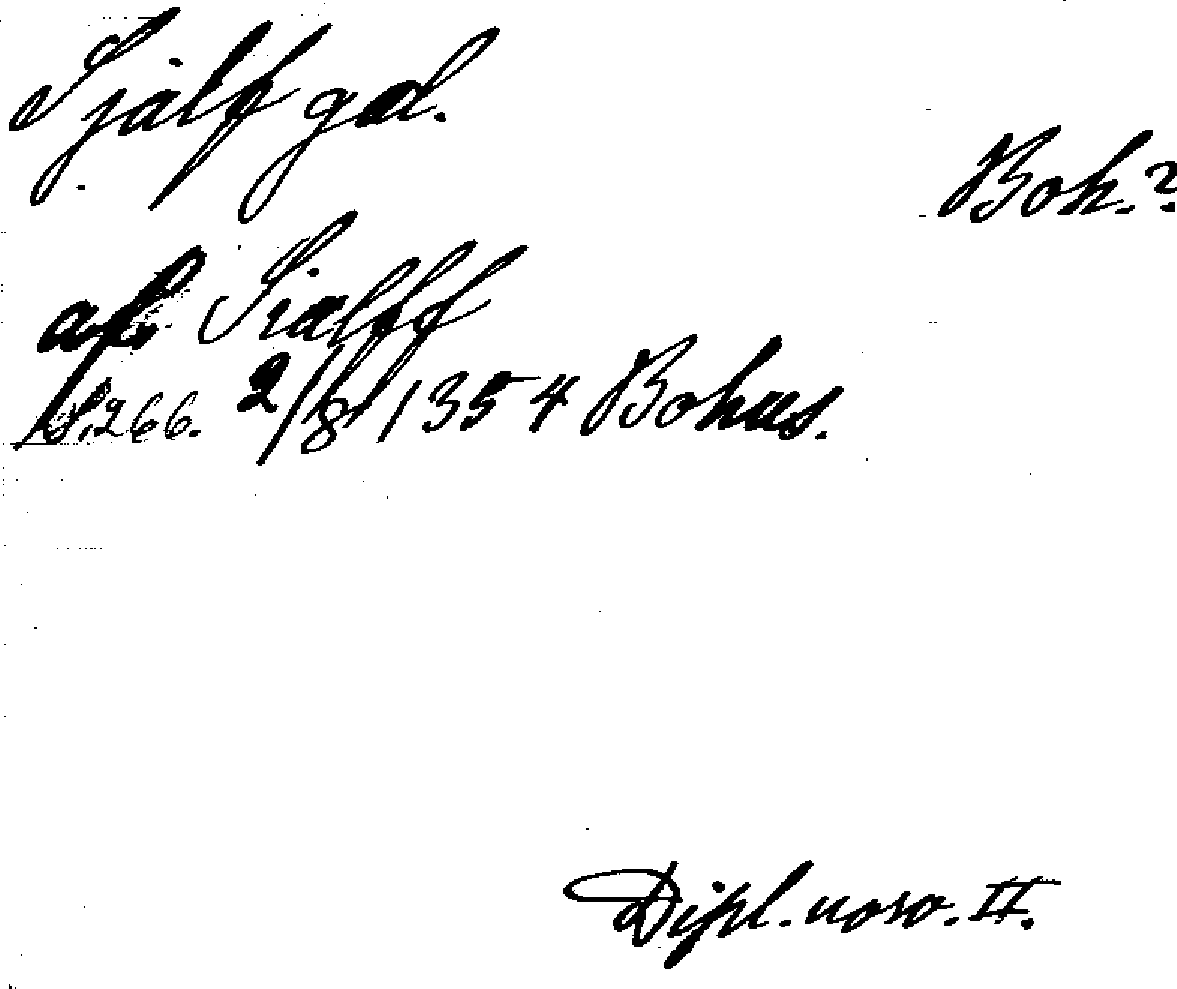 Sjalf gd.
Boh.?
af Sialff
S. 266. 2/8 1354 Bohus.
Dipl. norv. II.